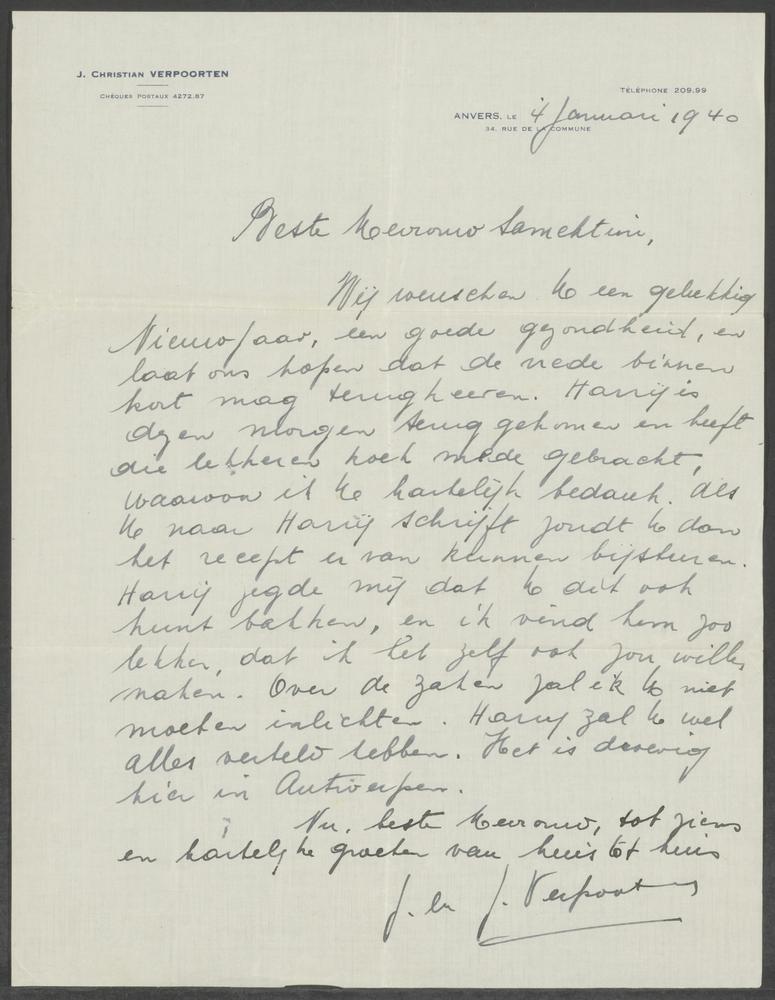 J. CHRISTIAN VERPOORTEN
CHÈQUES POSTAUX 4272.87
TÉLÉPHONE 209.99
ANVERS, LE 4 Januari 1940
34, RUE DE LA COMMUNE
Beste Mevrouw Samehtini,
Wij wenschen U een gelukkig
Nieuwjaar, een goede gezondheid, en
laat ons hopen dat de vrede binnen
kort mag terugkeeren. Harrij is
dezen morgen terug gekomen en heeft
die lekkeren koek mede gebracht,
waarvoor ik U hartelijk bedank. Als
U naar Harrij schrijft zoudt U dan
het recept er van kunnen bijsturen.
Harrij zegde mij dat U dit ook
kunt bakken, en ik vind hem zoo
lekker, dat ik het zelf ook zou willen
maken. Over de zaken zal ik U niet
moeten inlichten. Harry zal U wel
alles verteld hebben. Het is droevig
hier in Antwerpen.
Nu, beste Mevrouw, tot ziens
en hartelijke groeten van huis tot huis
J. en J. Verpoorten